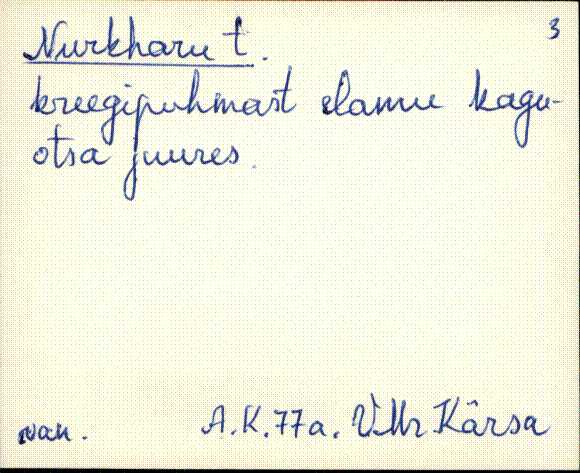 3
Nurkharu t.
kreegipuhmast elamu kagu-
otsa juures.
van. A.K.77a. VMr Kärsa